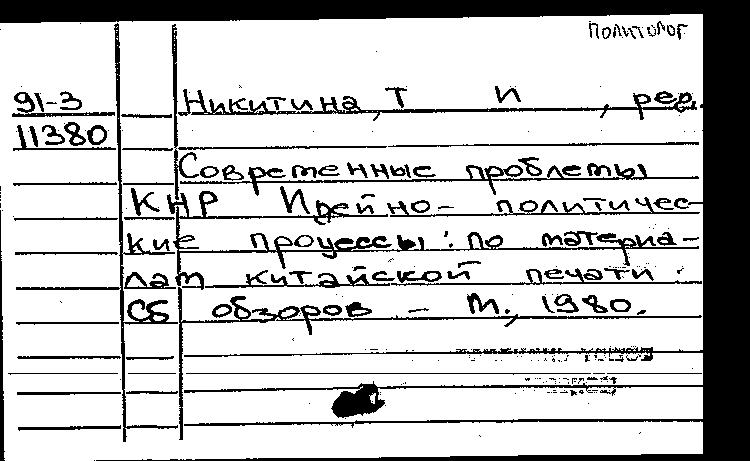 Политолог
91-3 Никитина, Т И , ред.
11380
Современные проблемы
КНР Идейно- политичес-
кие процессы : по материа-
лам китайской печати :
Сб обзоров - М., 1980.